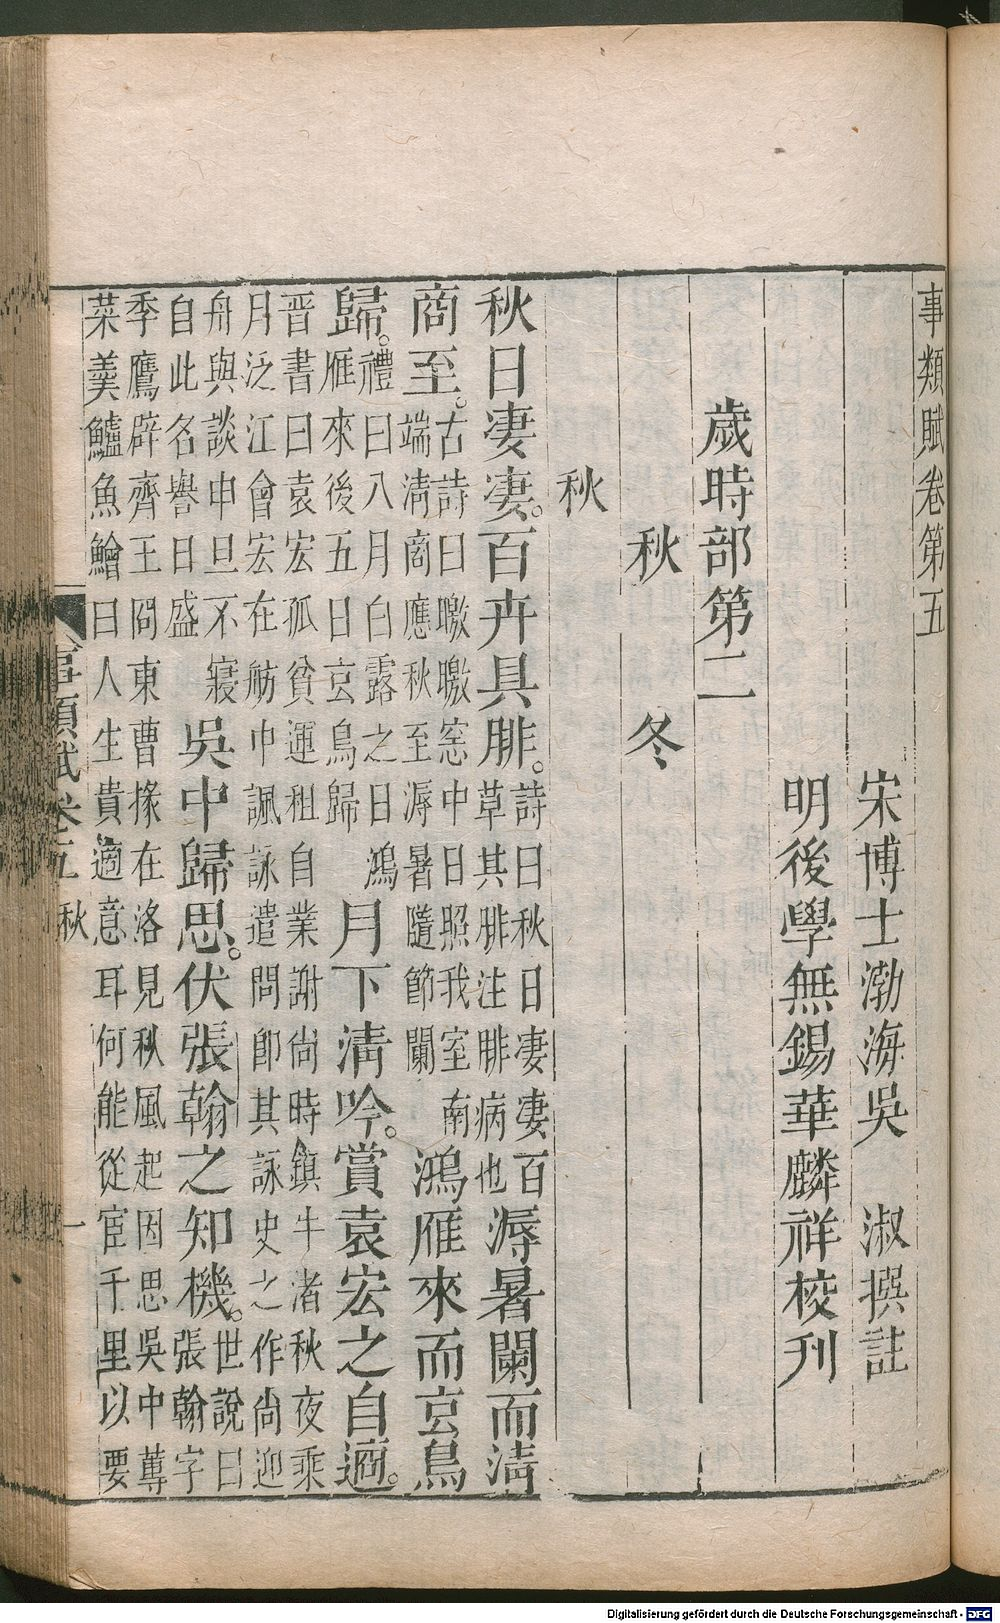 事類賦卷第五
宋博士渤海吳 淑撰註
明後學無錫華麟祥校刊
歲時部第二
秋 冬
秋
秋日凄凄。百卉具腓。詩曰秋日凄凄百草其腓注腓病也溽暑闌而清
商至。古詩曰曒曒窓中日照我室南端清商應秋至溽暑隨節闌鴻雁來而玄鳥
歸。禮曰八月白露之日鴻雁來後五日玄鳥歸月下清吟。賞袁宏之自適。
晋書曰袁宏孤貧運租自業謝尚時鎮牛渚秋夜乘
月泛江會宏在舫中諷詠遣問即其詠史之作尚迎
舟與談申旦不寢自此名譽日盛吳中歸思。伏張翰之知機。世說曰張翰字
季鷹辟齊王冏東曹掾在洛見秋風起因思吳中蓴
菜羹鱸魚鱠曰人生貴適意耳何能從宦千里以要
事類賦卷五 秋 一
Digitalisierung gefördert durch die Deutsche Forschungsgemeinschaft - DFG